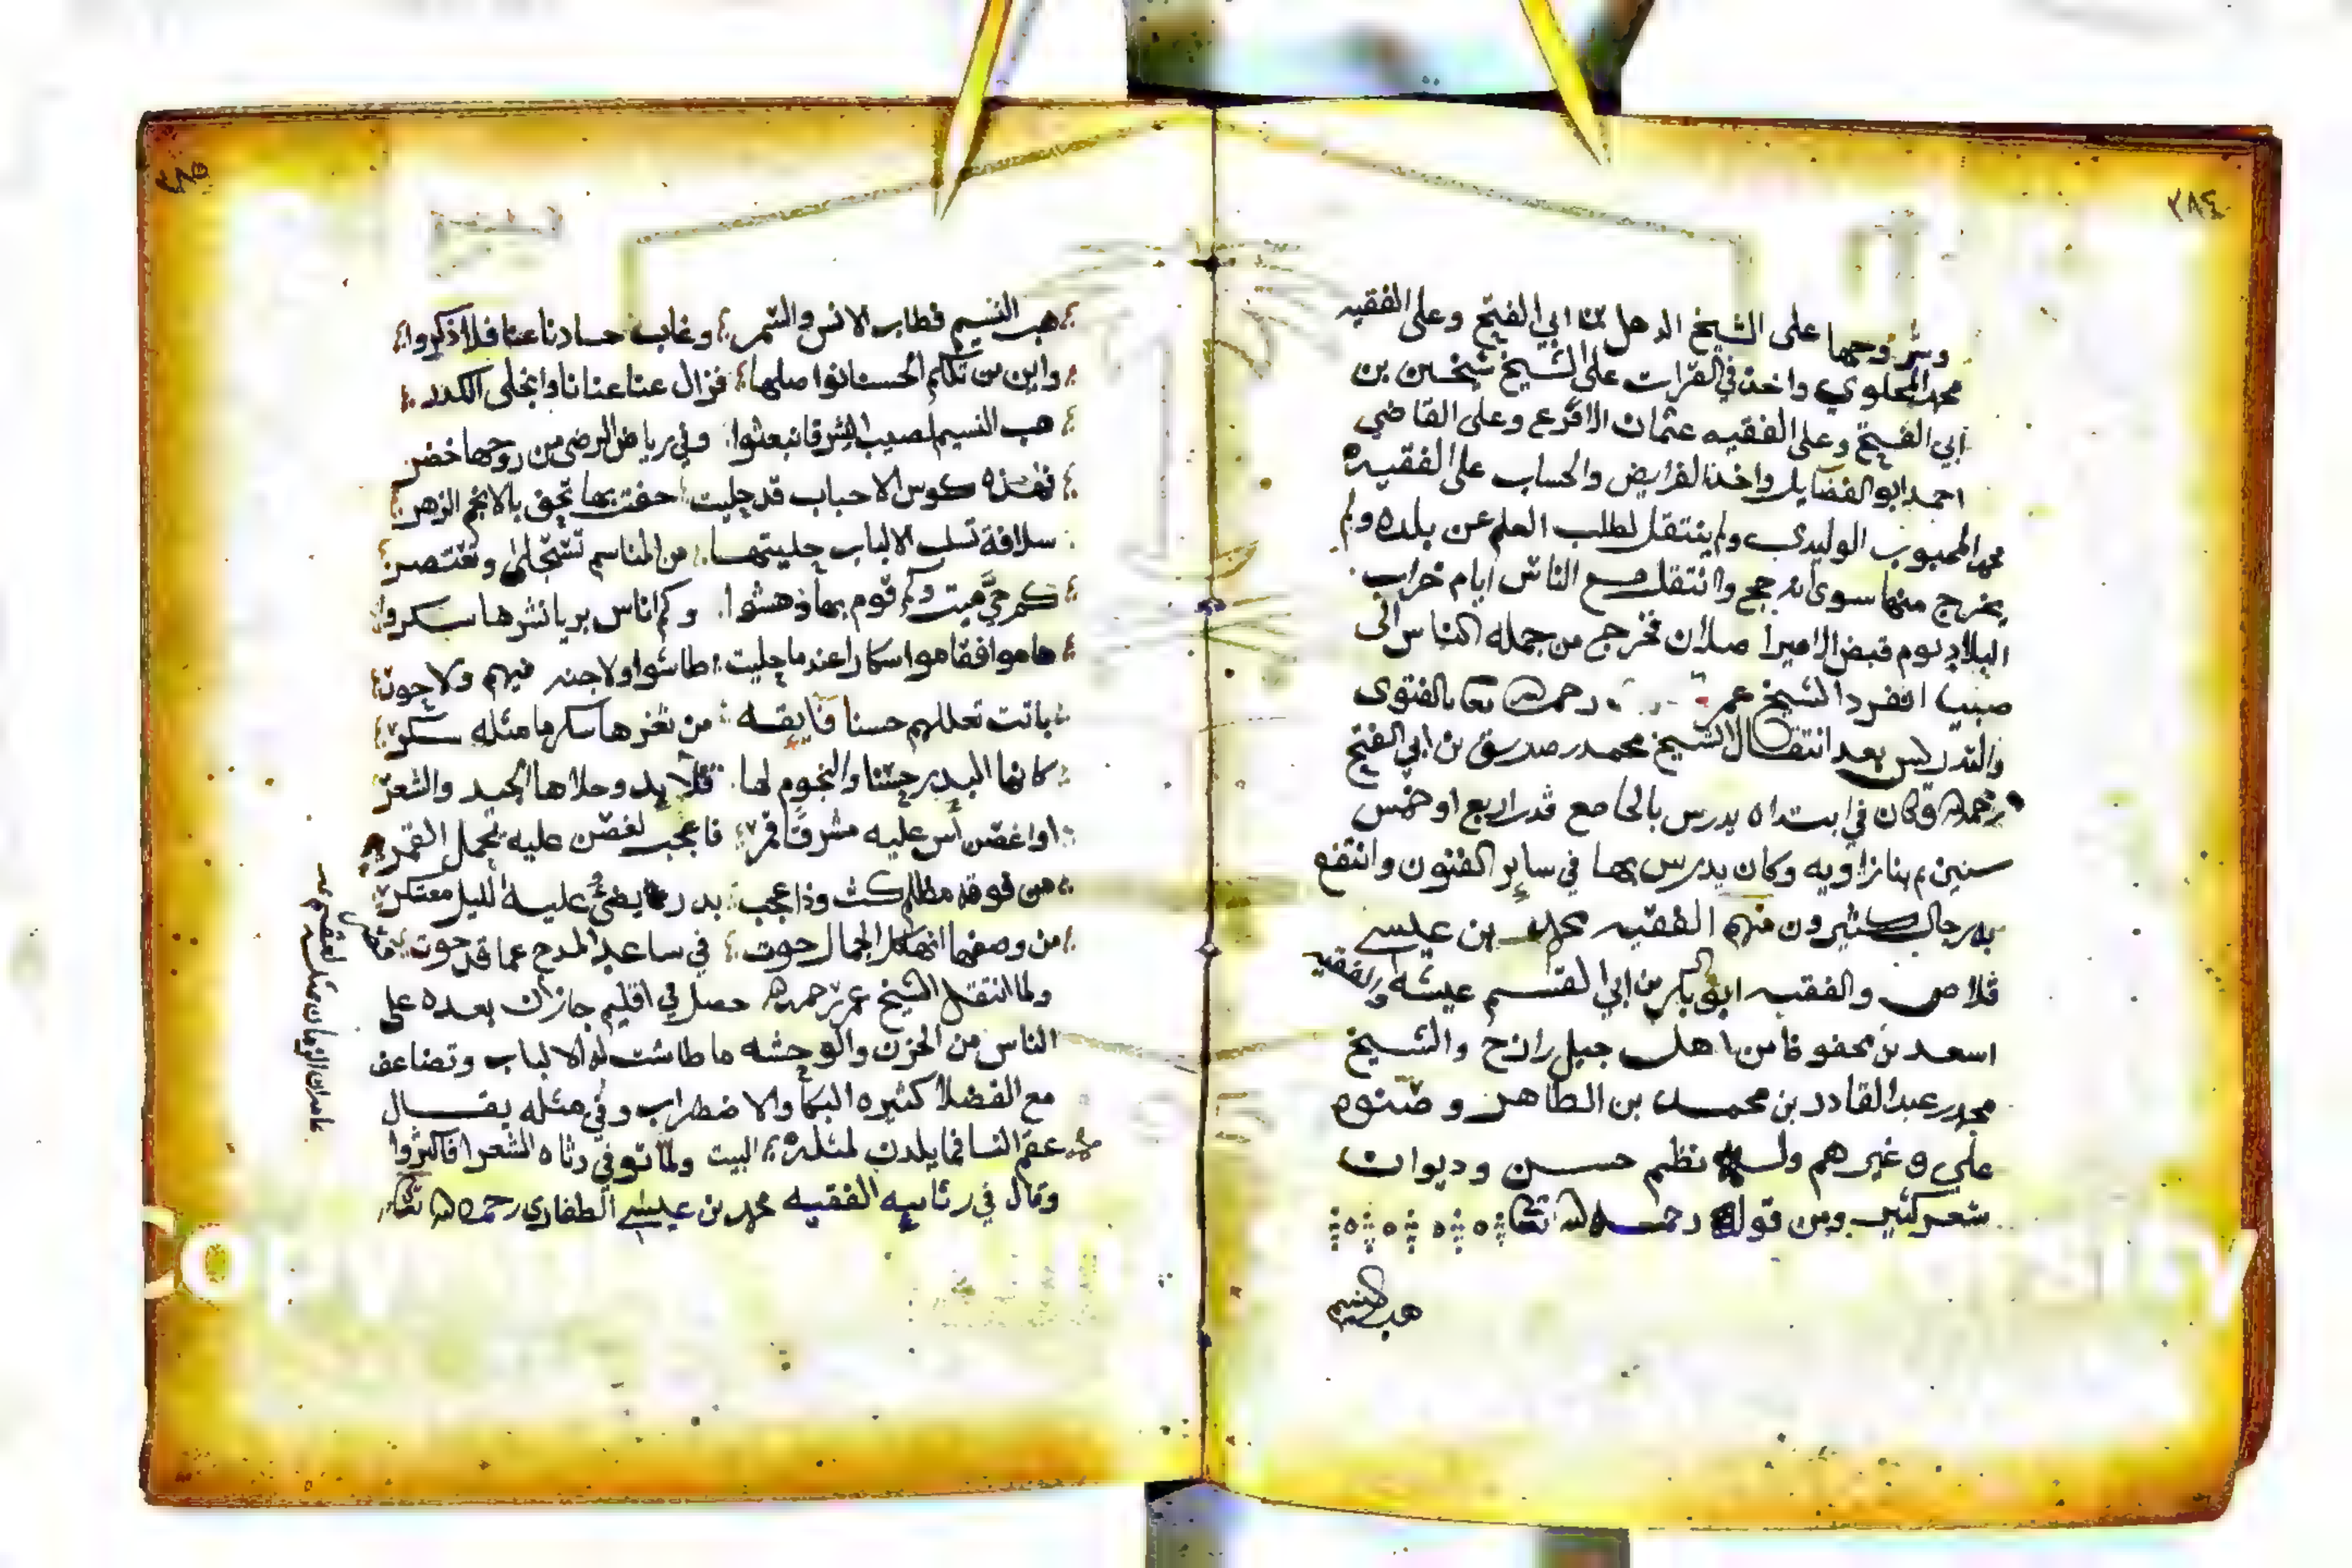 ٣٨٤
وشروحها على الشيخ الدهل بن ابي الفتح وعلى الفقيه
محمد المحلوي واخذ في القرات على الشيخ شيخين بن
ابي الفتح وعلى الفقيه عثمان الاقرع وعلى القاضي
احمد ابو الفضايل واخذ الفرايض والحساب على الفقيه
محمد المحبوب الوليدي ولم ينتقل لطلب العلم عن بلده ولم
يخرج منها سوى انه حج وانتقل مع الناس ايام خراب
البلاد يوم قبض الامير اصلان فخرج من جمله الناس الى
صبيا انفرد الشيخ عمر رحمه الله تعا بالفتوى
والتدريس بعد انتقال الشيخ محمد صديق بن ابي الفتح
رحمه الله وكان في ابتداه يدرس بالجامع قدر اربع او خمس
سنين ثم بنا زاويه وكان يدرس بها في ساير الفنون وانتفع
به رجال كثيرون منهم الفقيه محمد بن عيسى
قلاص والفقيه ابو بكر بن ابي القسم عيشه والفقيه
اسعد بن محفوظ من اهل جبل رازح والشيخ
محمد عبد القادر بن محمد بن الطاهر وصنوه
علي وغيرهم وله نظم حسن وديوان
شعر كثير ومن قوله رحمه الله تعا
هب النسيم
٣٨٥
هب النسيم فطاب الانس والسمر وغاب حسادنا عنا فلا ذكروا
واين من تكلم الحسنا نواصلها فزال عنا عنانا وانجلى الكدر
هب النسيم لصيب الشرق انبعثوا وفي رياض الرضى من روحها خضر
فهذه كوس الاحباب قد جليت حفت بها تحف بالانجم الزهر
سلافة تسلب الالباب جليتها من المناسم تستجلى وتعتصر
كم حي ميت وكم قوم بها دهشوا وكم اناس بريا نشرها سكروا
هاموا فقاموا سكارا عند ما جليت طاشوا ولا جنه فيهم ولا حور
باتت تعللهم حسنا فايقه من ثغرها سكرما مثله سكر
كانها البدر حسنا والنجوم لها قلايد وحلاها الجيد والشعر
او غصن اس عليه مشرقا قمر فاعجب لغصن عليه يحمل القمر
من فوقه مظلم كث وذا عجب بدر يضيء عليه الليل معتكر
من وصفها انها كل الجمال حوت في ساعد المدح عما قد حوت قصر
ولما انتقل الشيخ عمر رحمه الله حصل في اقليم جازان بعده على
الناس من الحزن والوحشه ما طاشت له الالباب وتضاعف
مع الفضلا كثيره البكا والاضطراب وفي مثله يقال
عقم النسا فما يلدن لمثله البيت ولما توفي رثاه الشعرا فاكثروا
وقال في رثاييه الفقيه محمد بن عيسى الطفاري رحمه الله تعا
ان الزمان بمثله لعقيم